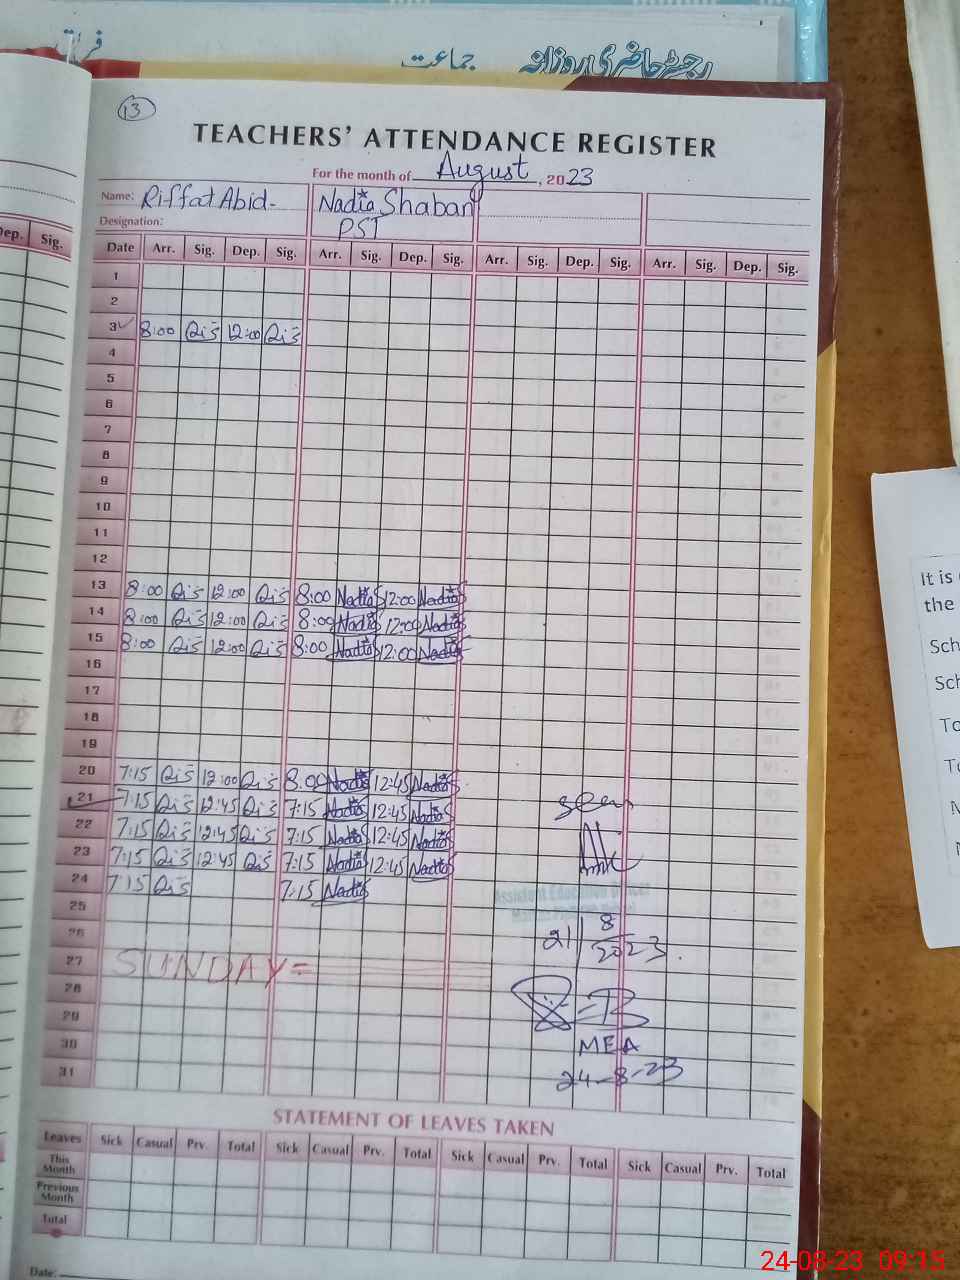 رجسٹر حاضری روزانہ جماعت
13
TEACHERS' ATTENDANCE REGISTER
For the month of August, 2023
Name: Riffat Abid- Nadia Shaban
Designation: PST
Dep. Sig.
Date Arr. Sig. Dep. Sig. Arr. Sig. Dep. Sig. Arr. Sig. Dep. Sig. Arr. Sig. Dep. Sig.
1
2
3 8:00 12:00
4
5
6
7
8
9
10
11
12
13 8:00 12:00 8:00 Nadia S 12:00 Nadia S
14 8:00 12:00 8:00 Nadia S 12:00 Nadia S
15 8:00 12:00 8:00 Nadia S 12:00 Nadia S
16
17
18
19
20 7:15 12:00 8:00 Nadia S 12:45 Nadia S
21 7:15 12:45 7:15 Nadia S 12:45 Nadia S seen
22 7:15 12:45 7:15 Nadia S 12:45 Nadia S
23 7:15 12:45 7:15 Nadia S 12:45 Nadia S
24 7:15 7:15 Nadia S
Assistant Education Officer
25
26 21/8/2023.
27 SUNDAY=
28
29
30 MEA
31 24-8-23
STATEMENT OF LEAVES TAKEN
Leaves Sick Casual Prv. Total Sick Casual Prv. Total Sick Casual Prv. Total Sick Casual Prv. Total
This Month
Previous Month
Total
Date:
It is
the
Sch
Sch
To
To
24-08-23 09:15